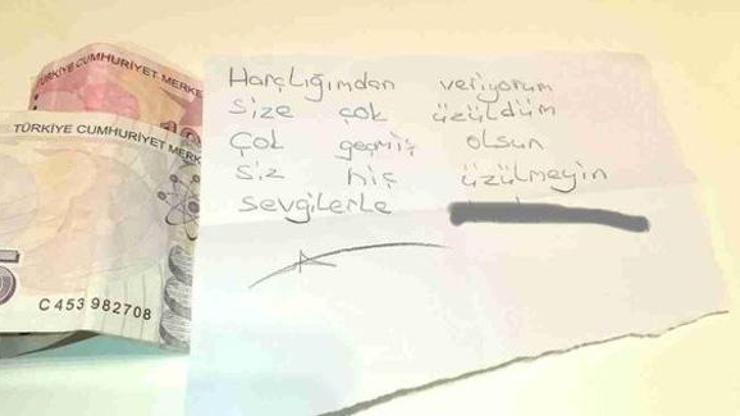 TÜRKİYE CUMHURİYET MERKE
10
TÜRKİYE CUMHURİYET MERK
5
C453 982708
Harçlığımdan veriyorum
Size çok üzüldüm
Çok geçmiş olsun
Siz hiç üzülmeyin
Sevgilerle